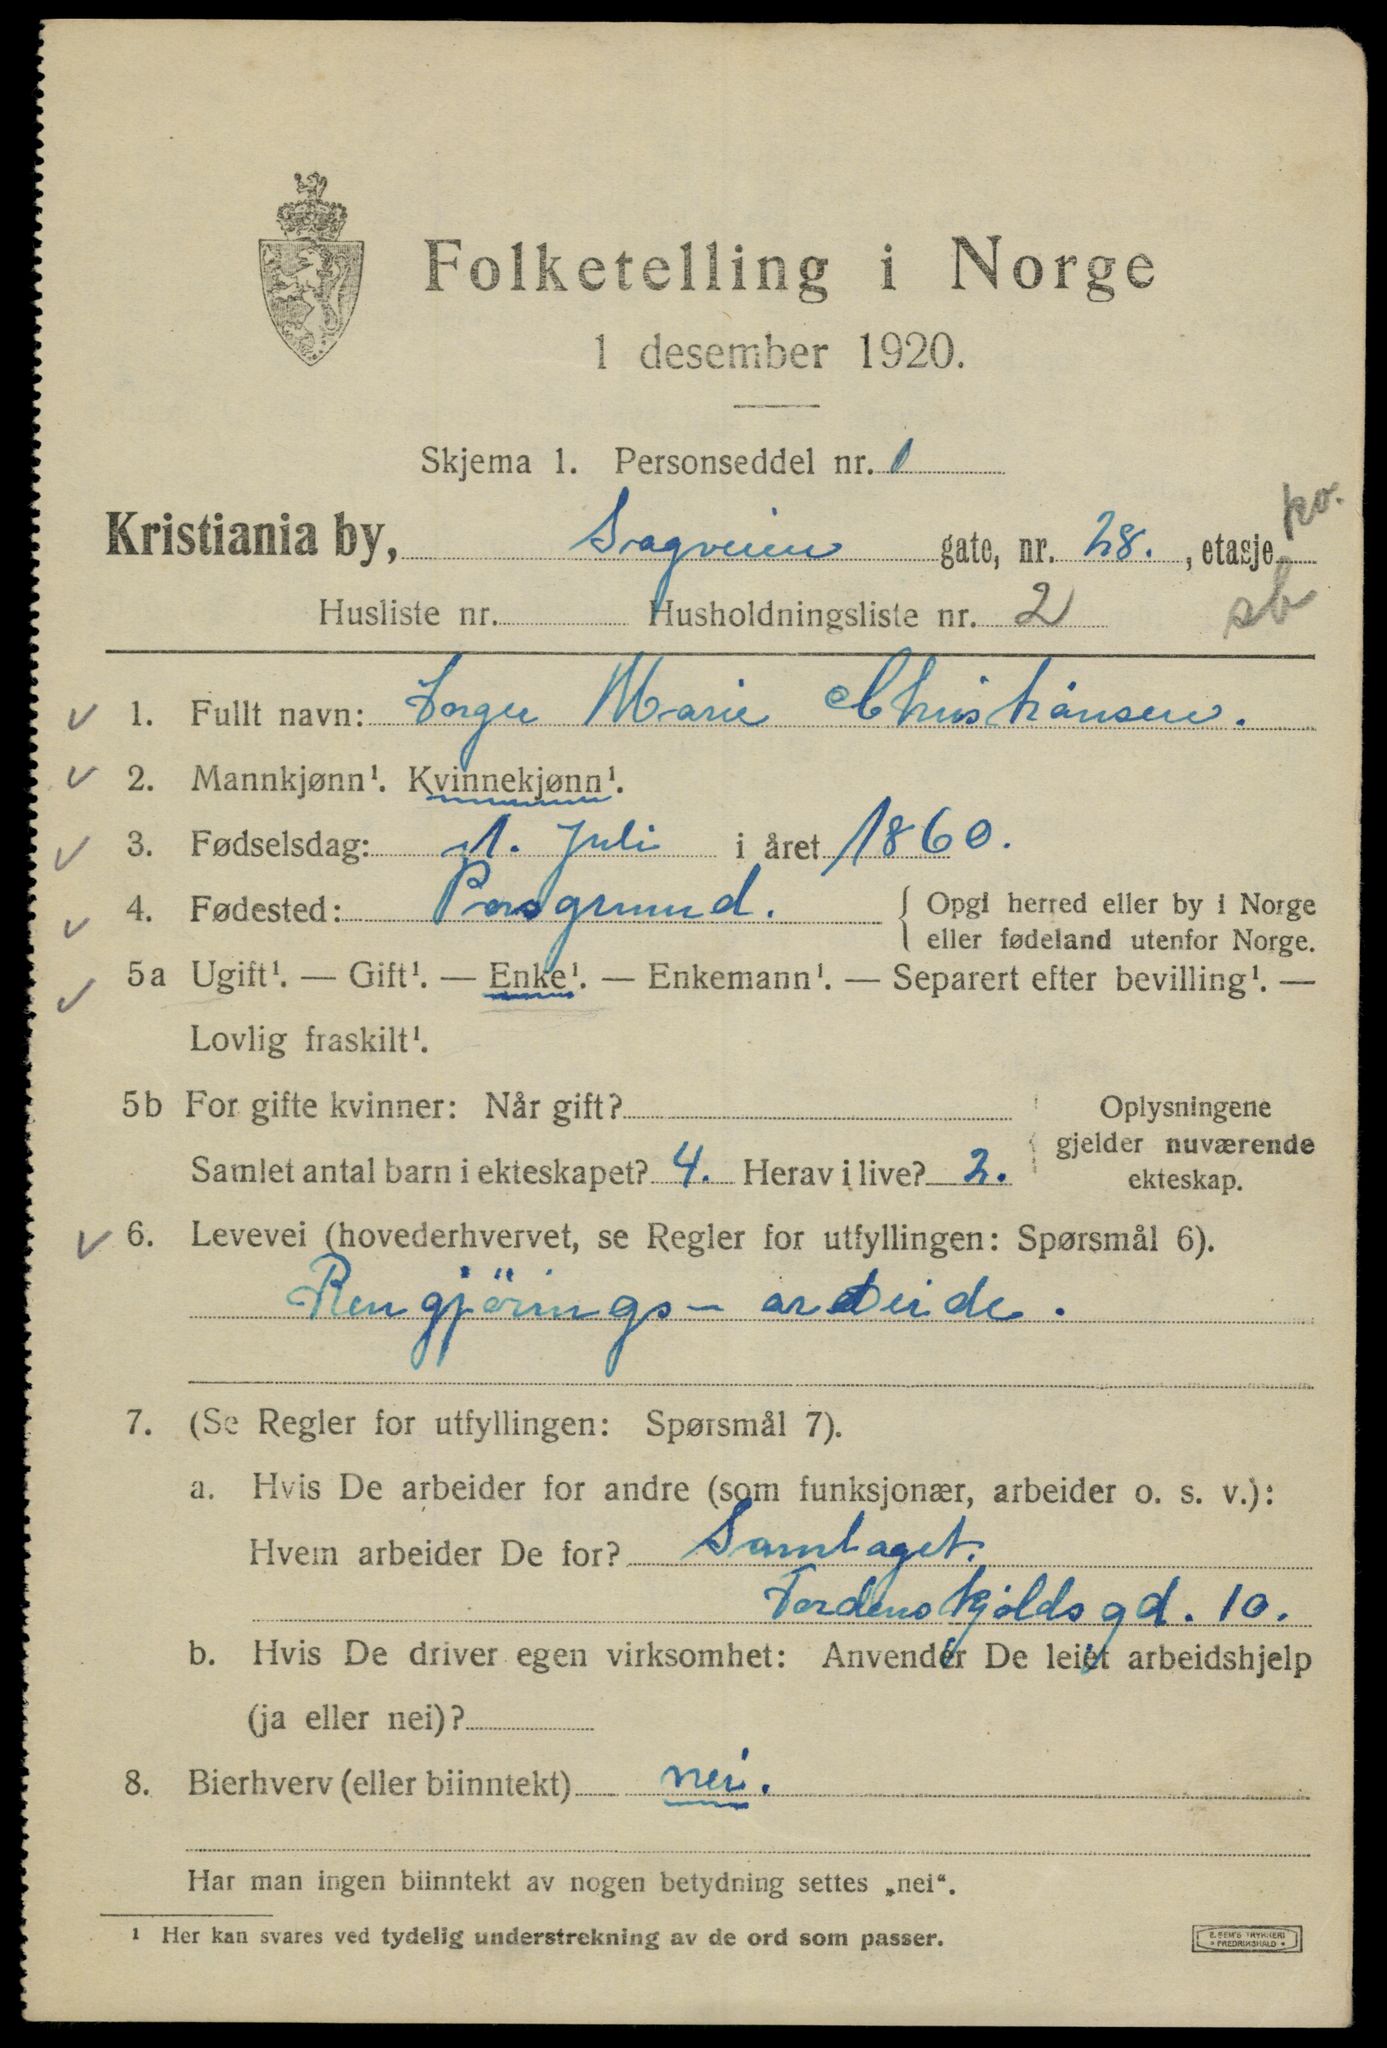 Folketelling i Norge
1 desember 1920.
Skjema 1. Personseddel nr. 1
Kristiania by, Sagveien gate, nr. 28., etasje
Husliste nr. Husholdningsliste nr. 2 sb
1. Fullt navn: Marie Christiansen.
2. Mannkjønn¹. Kvinnekjønn¹.
3. Fødselsdag: 1. Juli i året 1860.
4. Fødested: Porsgrund. Opgi herred eller by i Norge
eller fødeland utenfor Norge.
5a Ugift¹. — Gift¹. — Enke¹. — Enkemann¹. — Separert efter bevilling¹. —
Lovlig fraskilt¹.
5b For gifte kvinner: Når gift?
Samlet antal barn i ekteskapet? 4. Herav i live? 2.
Oplysningene
gjelder nuværende
ekteskap.
6. Levevei (hovederhvervet, se Regler for utfyllingen: Spørsmål 6).
Rengjörings-arbeide.
7. (Se Regler for utfyllingen: Spørsmål 7).
a. Hvis De arbeider for andre (som funksjonær, arbeider o. s. v.):
Hvem arbeider De for? Samlaget.
Tordenskjoldsgd. 10.
b. Hvis De driver egen virksomhet: Anvender De leiet arbeidshjelp
(ja eller nei)?
8. Bierhverv (eller biinntekt) nei.
Har man ingen biinntekt av nogen betydning settes „nei“.
¹ Her kan svares ved tydelig understrekning av de ord som passer.
E. SEM'S TRYKKERI
• FREDRIKSHALD •